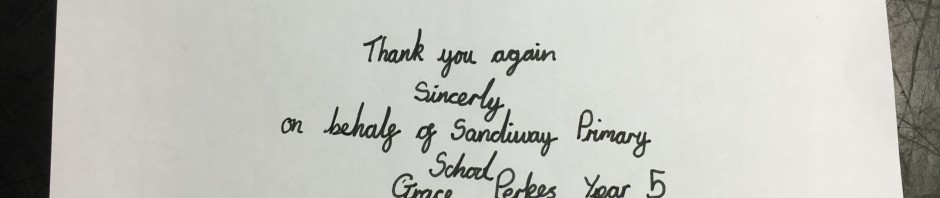 Thank you again
Sincerly
on behalf of Sandiway Primary
School
Grace Perkes Year 5